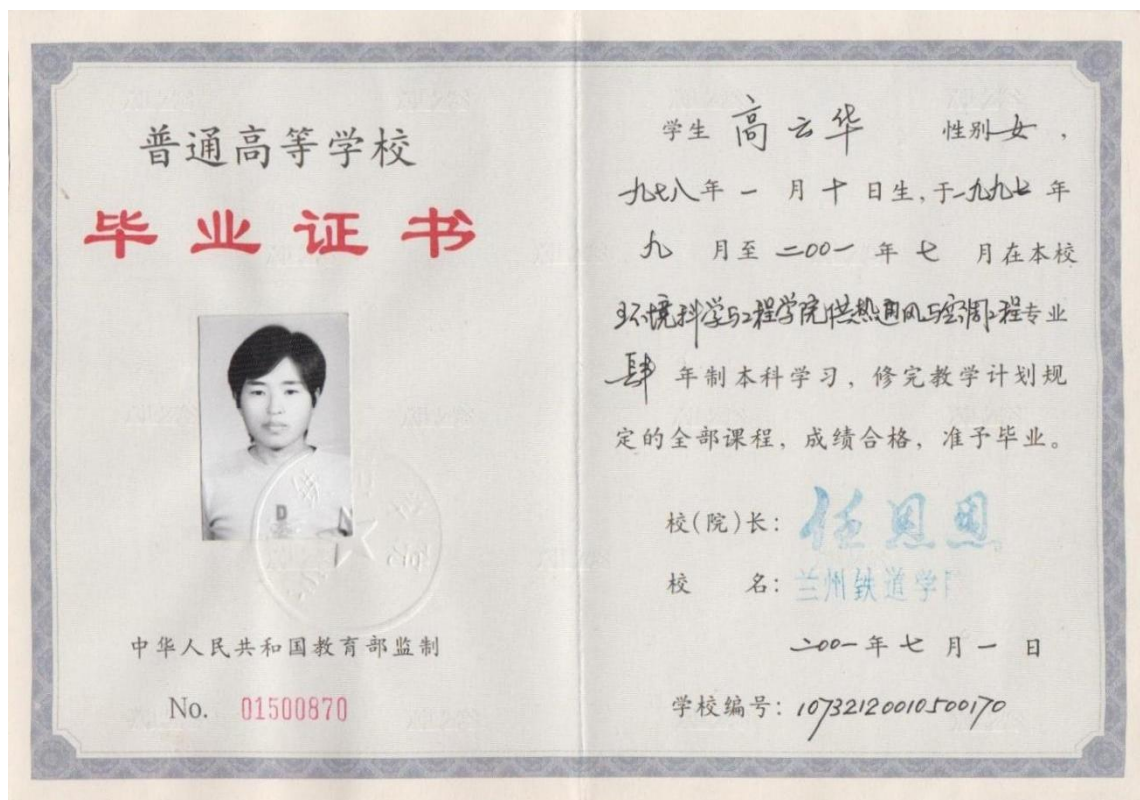 普通高等学校
毕业证书
中华人民共和国教育部监制
No. 01500870
学生 高云华 性别 女，
一九七八年 一 月 十 日生，于一九九七年
九 月至 二〇〇一 年 七 月在本校
环境科学与工程学院供热通风与空调工程专业
肆 年制本科学习，修完教学计划规
定的全部课程，成绩合格，准予毕业。
校(院)长： 任恩恩
校 名： 兰州铁道学
二〇〇一年 七 月 一 日
学校编号：10732120010500170